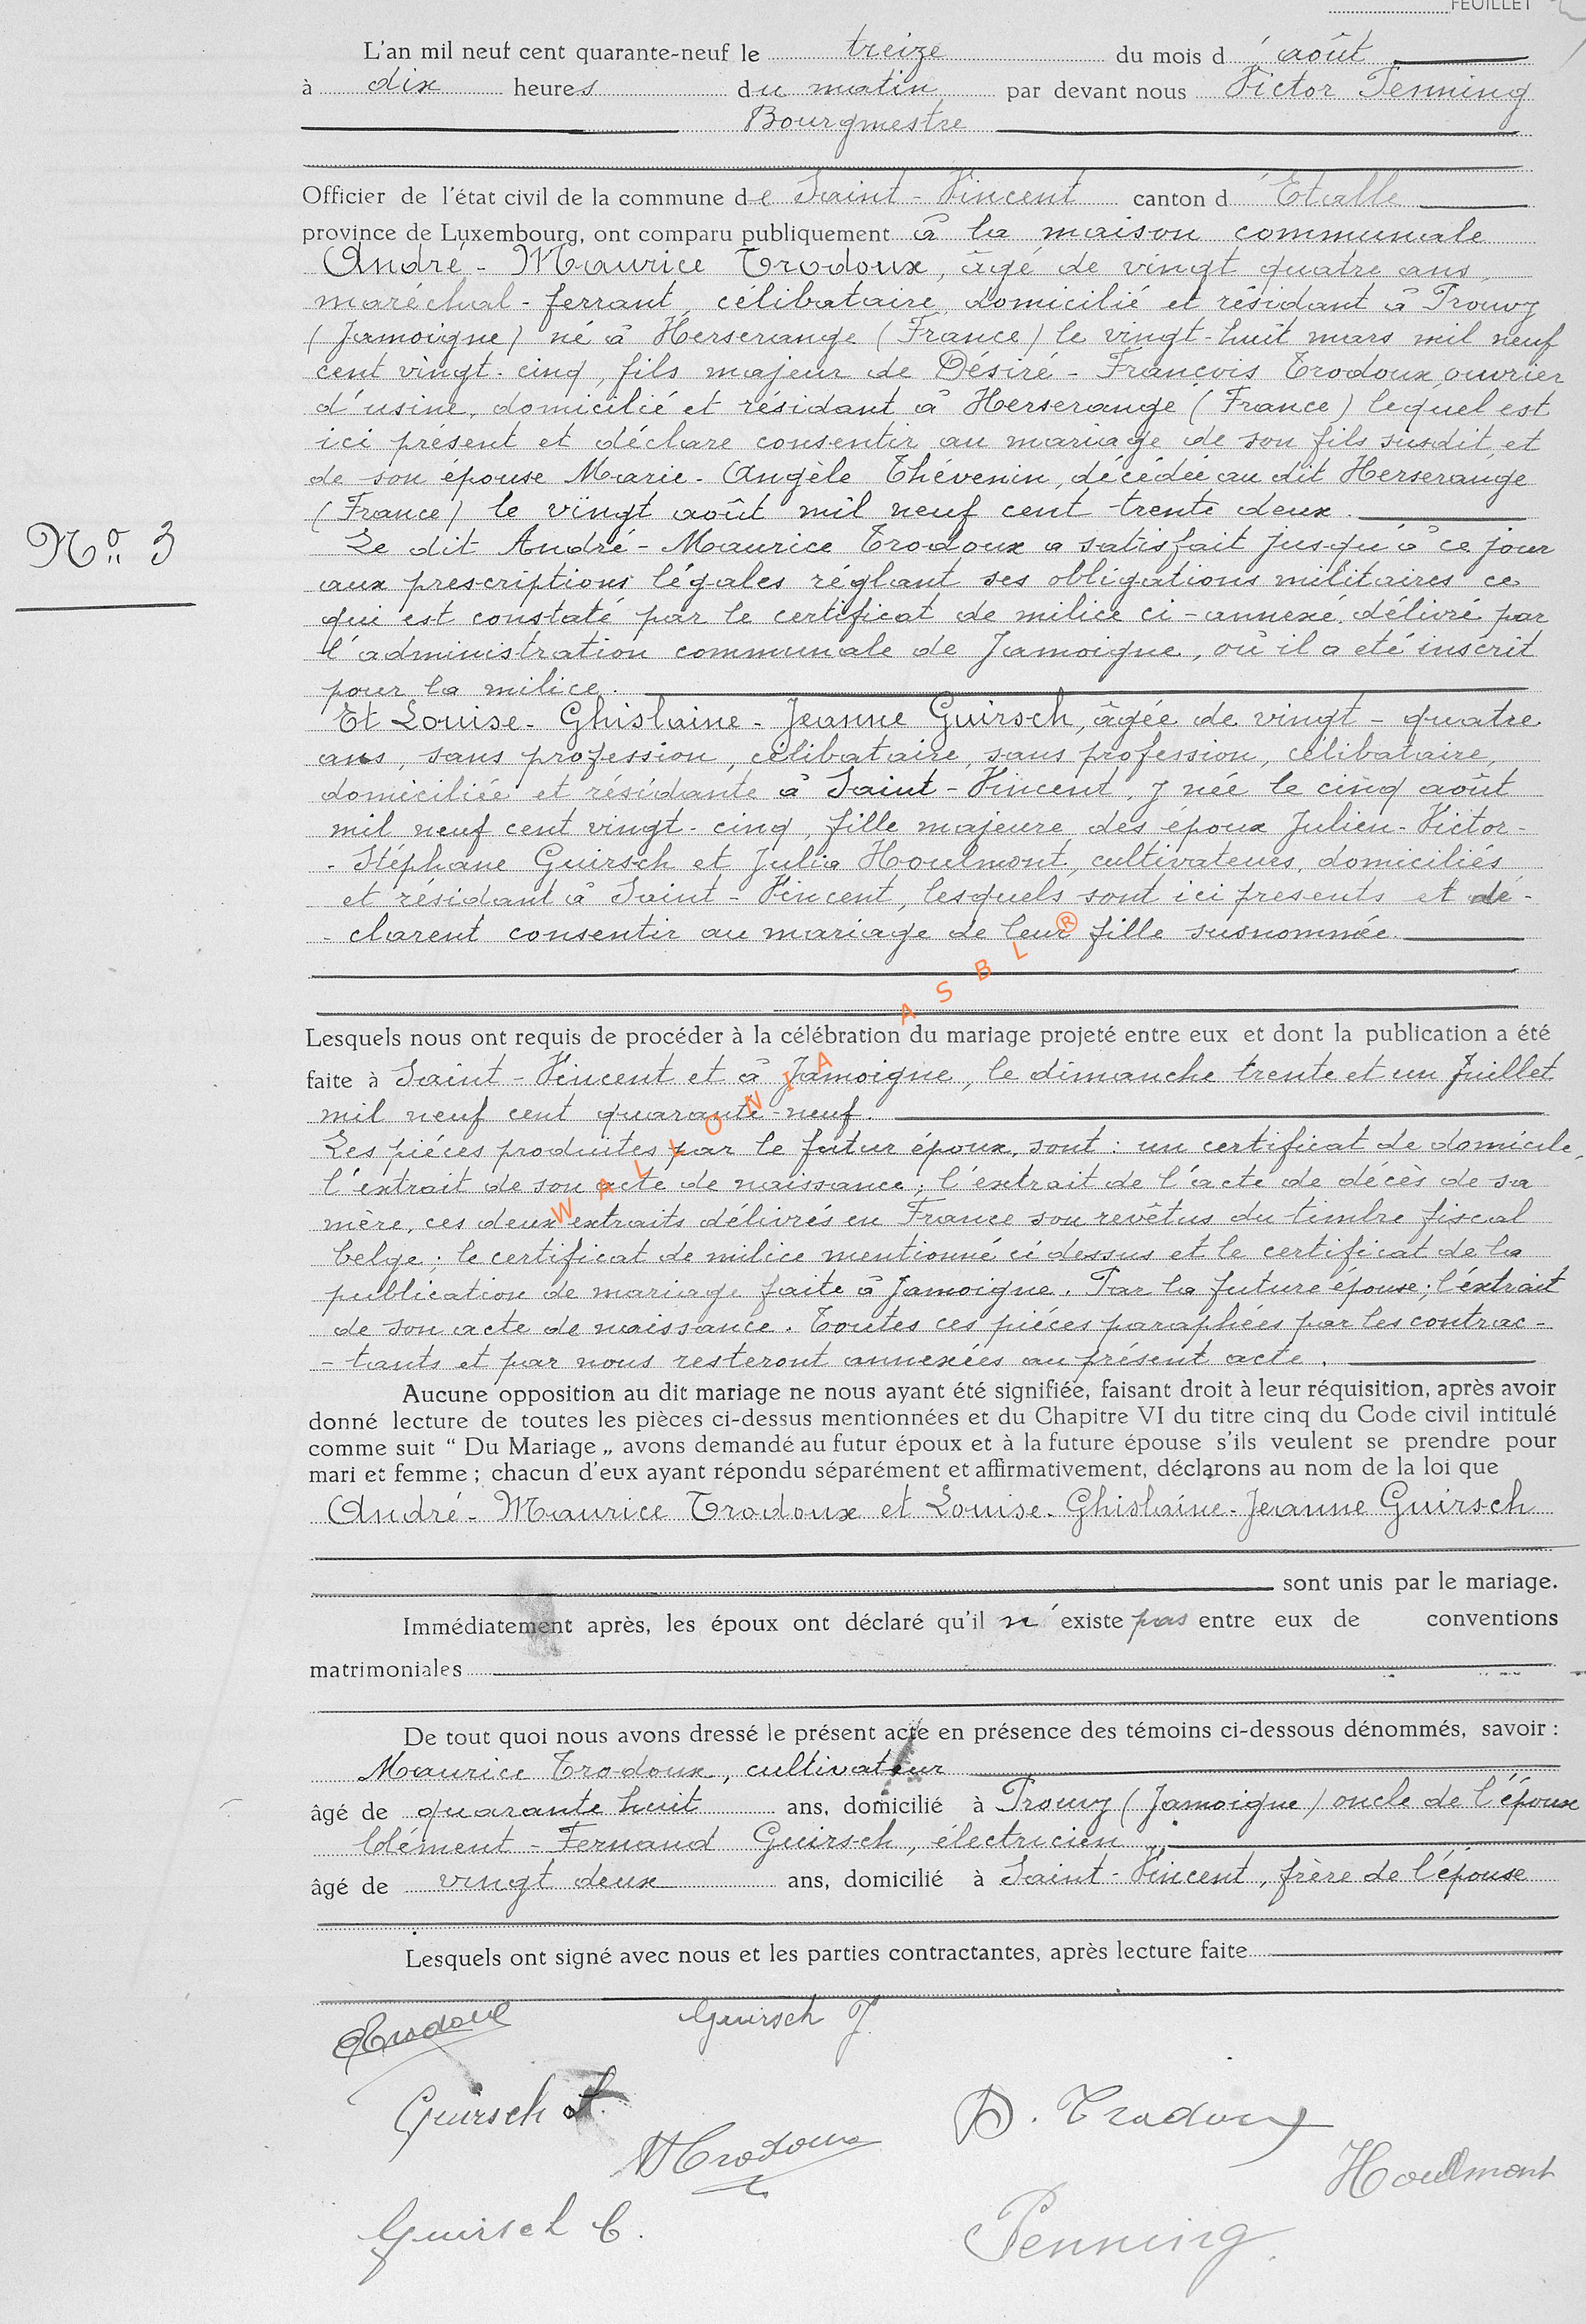 FEUILLET
L'an mil neuf cent quarante-neuf le treize du mois d'août
à dix heures du matin par devant nous Victor Penning
Bourgmestre
Officier de l'état civil de la commune de Saint-Vincent canton d'Etalle
province de Luxembourg, ont comparu publiquement à la maison communale
André-Maurice Trodoux, âgé de vingt quatre ans,
maréchal-ferrant, célibataire, domicilié et résidant à Prouvy
(Jamoigne) né à Herserange (France) le vingt-huit mars mil neuf
cent vingt-cinq, fils majeur de Désiré-François Trodoux, ouvrier
d'usine, domicilié et résidant à Herserange (France) lequel est
ici présent et déclare consentir au mariage de son fils susdit, et
de son épouse Marie-Angèle Thévenin, décédée au dit Herserange
(France) le vingt août mil neuf cent trente deux.
N° 3
Le dit André-Maurice Trodoux a satisfait jusqu'à ce jour
aux prescriptions légales réglant ses obligations militaires ce
qui est constaté par le certificat de milice ci-annexé, délivré par
l'administration communale de Jamoigne, où il a été inscrit
pour la milice.
Et Louise-Ghislaine-Jeanne Guirsch, âgée de vingt-quatre
ans, sans profession, célibataire, sans profession, célibataire,
domiciliée et résidante à Saint-Vincent, y née le cinq août
mil neuf cent vingt-cinq, fille majeure des époux Julien-Victor-
-Stéphane Guirsch et Julia Houlmont, cultivateurs, domiciliés
et résidant à Saint-Vincent, lesquels sont ici presents et dé-
-clarent consentir au mariage de leur fille susnommée.
Lesquels nous ont requis de procéder à la célébration du mariage projeté entre eux et dont la publication a été
faite à Saint-Vincent et à Jamoigne, le dimanche trente et un Juillet
mil neuf cent quarante-neuf.
Les piéces produites par le futur époux, sont : un certificat de domicile,
l'extrait de son acte de naissance; l'extrait de l'acte de décès de sa
mère, ces deux extraits délivrés en France son revêtus du timbre fiscal
belge; le certificat de milice mentionné ci dessus et le certificat de la
publication de mariage faite à Jamoigne. Par la future épouse; l'extrait
de son acte de naissance. Toutes ces piéces paraphées par les contrac-
-tants et par nous resteront annexées au présent acte.
WALLONIA ASBL ®
Aucune opposition au dit mariage ne nous ayant été signifiée, faisant droit à leur réquisition, après avoir
donné lecture de toutes les pièces ci-dessus mentionnées et du Chapitre VI du titre cinq du Code civil intitulé
comme suit “ Du Mariage „ avons demandé au futur époux et à la future épouse s'ils veulent se prendre pour
mari et femme ; chacun d'eux ayant répondu séparément et affirmativement, déclarons au nom de la loi que
André-Maurice Trodoux et Louise-Ghislaine-Jeanne Guirsch
sont unis par le mariage.
Immédiatement après, les époux ont déclaré qu'il n'existe pas entre eux de conventions
matrimoniales
De tout quoi nous avons dressé le présent acte en présence des témoins ci-dessous dénommés, savoir :
Maurice Trodoux, cultivateur
âgé de quarante huit ans, domicilié à Prouvy (Jamoigne) oncle de l'époux
Clément-Fernand Guirsch, électricien
âgé de vingt deux ans, domicilié à Saint-Vincent, frère de l'épouse
Lesquels ont signé avec nous et les parties contractantes, après lecture faite
Trodoux Guirsch J.
Guirsch L. D. Trodoux
MTrodoux Houlmont
Guirsch C. Penning